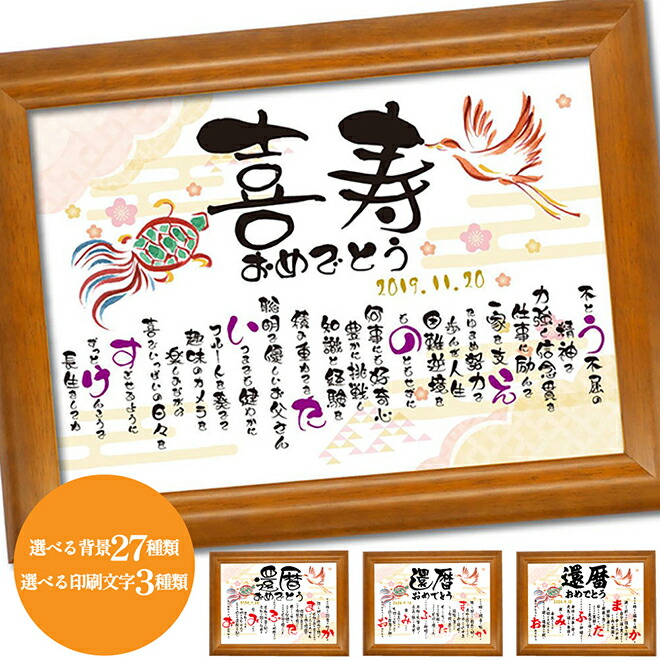 喜寿
おめでとう
2019.11.20
不とう不屈の
精神と
力強く信念貫き
仕事に励んで
一家を支え
たゆまぬ努力で
歩んだ人生
困難逆境を
ものともせずに
何事にも好奇心
豊かに挑戦し
知識と経験を
積み重ねてきた
聡明で優しいお父さん
いつまでも健やかに
フルートを奏でて
趣味のカメラを
楽しみながら
喜びいっぱいの日々を
すごせるように
ずっとけんこうで
長生きしてね
選べる背景27種類
選べる印刷文字3種類
還暦
おめでとう
還暦
おめでとう
還暦
おめでとう